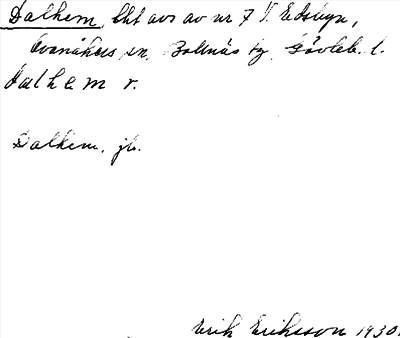 Dalhem, lht avs av nr 7 V. Edsbyn,
Ovanåkers sn, Bollnäs tg, Gävleb. l.
Dalhem r.
Dalhem, jb.
Erik Eriksson 1930.